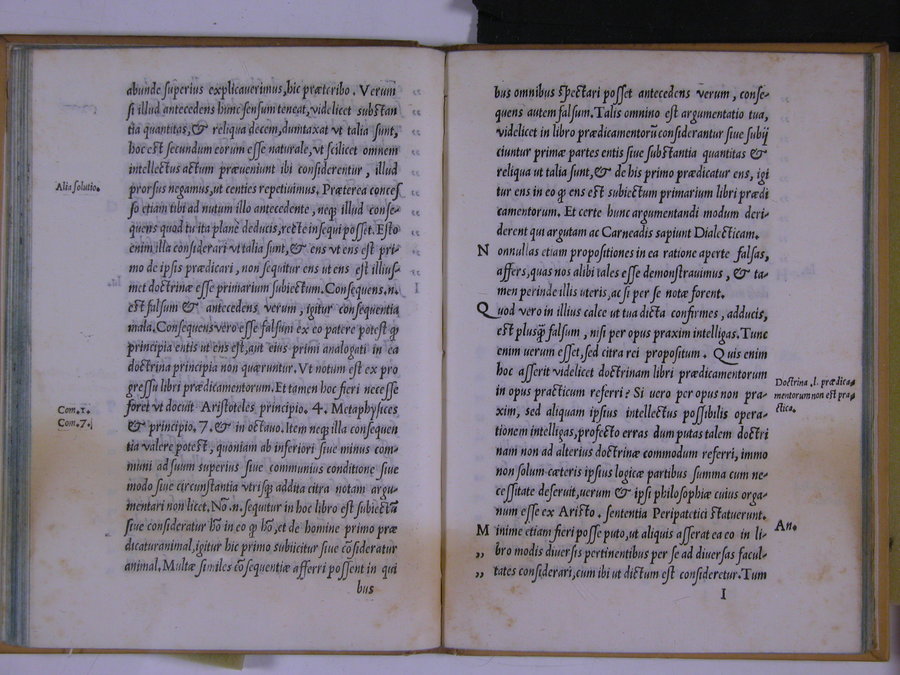 abunde superius explicauerimus, hic præteribo. Verum
si illud antecedens hunc sensum teneat, videlicet substan
tia quantitas, & reliqua decem, dumtaxat vt talia sunt,
hoc est secundum eorum esse naturale, vt scilicet omnem
intellectus actum præueniunt ibi considerentur, illud
prorsus negamus, ut centies repetiuimus. Præterea conces
Alia solutio.
so etiam tibi ad nutum illo antecedente, neq; illud conse-
quens quod tu ita planè deducis, recte insequi posset. Esto
enim illa considerari vt talia sunt, & ens vt ens est pri-
mo de ipsis prædicari, non sequitur ens ut ens est illius-
met doctrinæ esse primarium subiectum. Consequens .n.
est falsum & antecedens verum, igitur consequentia
mala. Consequens vero esse falsum ex eo patere potest q̃
principia entis ut ens est, aut eius primi analogati in ea
doctrina principia non quæruntur. Vt notum est ex pro
gressu libri prædicamentorum. Et tamen hoc fieri necesse
foret vt docuit Aristoteles principio. 4. Metaphysices
Com. 1.
& principio. 7. & in octauo. Item neq; illa consequen
Com. 7.
tia valere potest, quoniam ab inferiori siue minus com-
muni ad suum superius siue communius conditione siue
modo siue circunstantia vtrisq; addita citra notam argu-
mentari non licet. Nõ .n. sequitur in hoc libro est subiectũ
siue consideratur hõ in eo q̃ hõ, et de homine primo præ
dicatur animal, igitur hic primo subiicitur siue cõsideratur
animal. Multæ similes cõsequentiæ afferri possent in qui
bus
bus omnibus spectari posset antecedens verum, conse-
quens autem falsum. Talis omnino est argumentatio tua,
videlicet in libro prædicamentorũ considerantur siue subij
ciuntur primæ partes entis siue substantia quantitas &
reliqua ut talia sunt, & de his primo prædicatur ens, igi
tur ens in eo q̃ ens est subiectum primarium libri prædi
camentorum. Et certe hunc argumentandi modum deri-
derent qui argutam ac Carneadis sapiunt Dialecticam.
Nonnullas etiam propositiones in ea ratione aperte falsas,
affers, quas nos alibi tales esse demonstrauimus, & ta-
men perinde illis uteris, ac si per se notæ forent.
Quod vero in illius calce ut tua dicta confirmes, adducis,
est plusq̃ falsum, nisi per opus praxim intelligas. Tunc
enim uerum esset, sed citra rei propositum. Quis enim
hoc asserit videlicet doctrinam libri prædicamentorum
in opus practicum referri? Si uero per opus non pra-
Doctrina .l. prædica-
mentorum non est pra
ctica.
xim, sed aliquam ipsius intellectus possibilis opera-
tionem intelligas, profecto erras dum putas talem doctri
nam non ad alterius doctrinæ commodum referri, immo
non solum cæteris ipsius logicæ partibus summa cum ne-
cessitate deseruit, uerum & ipsi philosophiæ cuius orga-
num esse ex Aristo. sententia Peripatetici statuerunt.
An.
Minime etiam fieri posse puto, ut aliquis asserat ea eo in li-
„ bro modis diuersis pertinentibus per se ad diuersas facul-
„ tates considerari, cum ibi ut dictum est consideretur. Tum
I